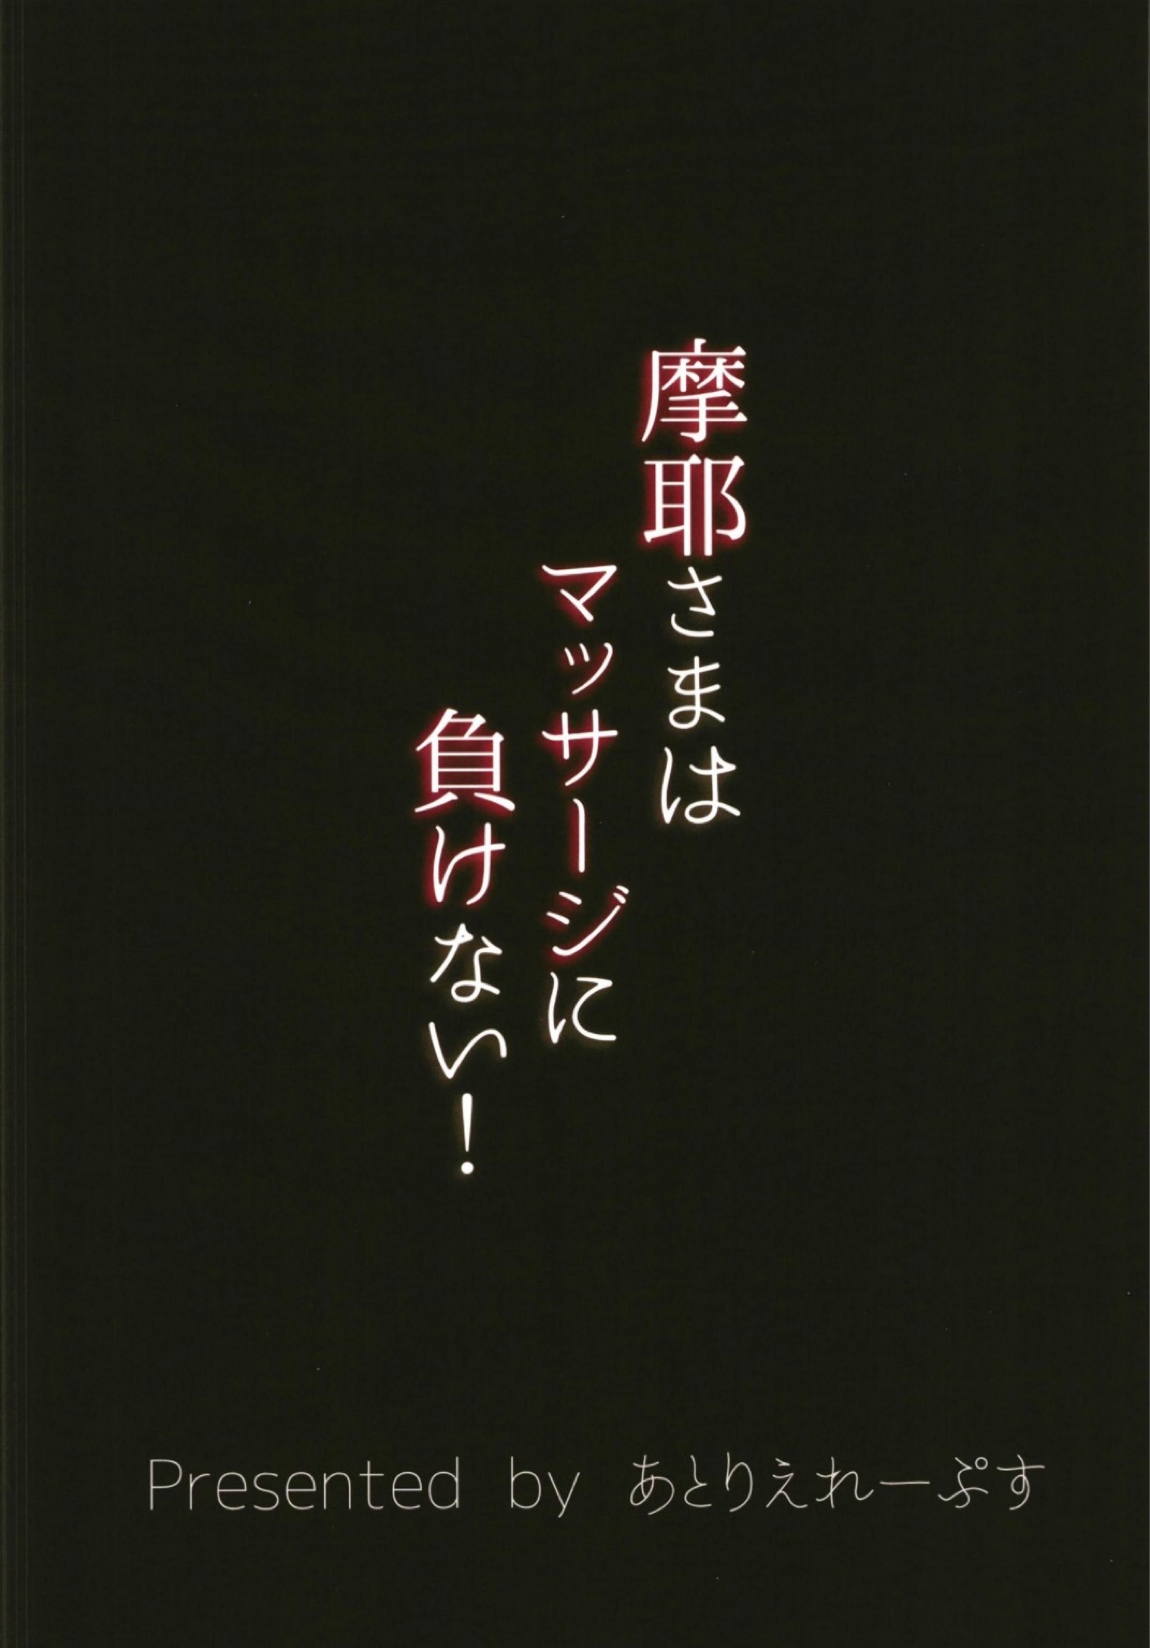 摩耶さまは
マッサージに
負けない！
Presented by あとりえれーぷす